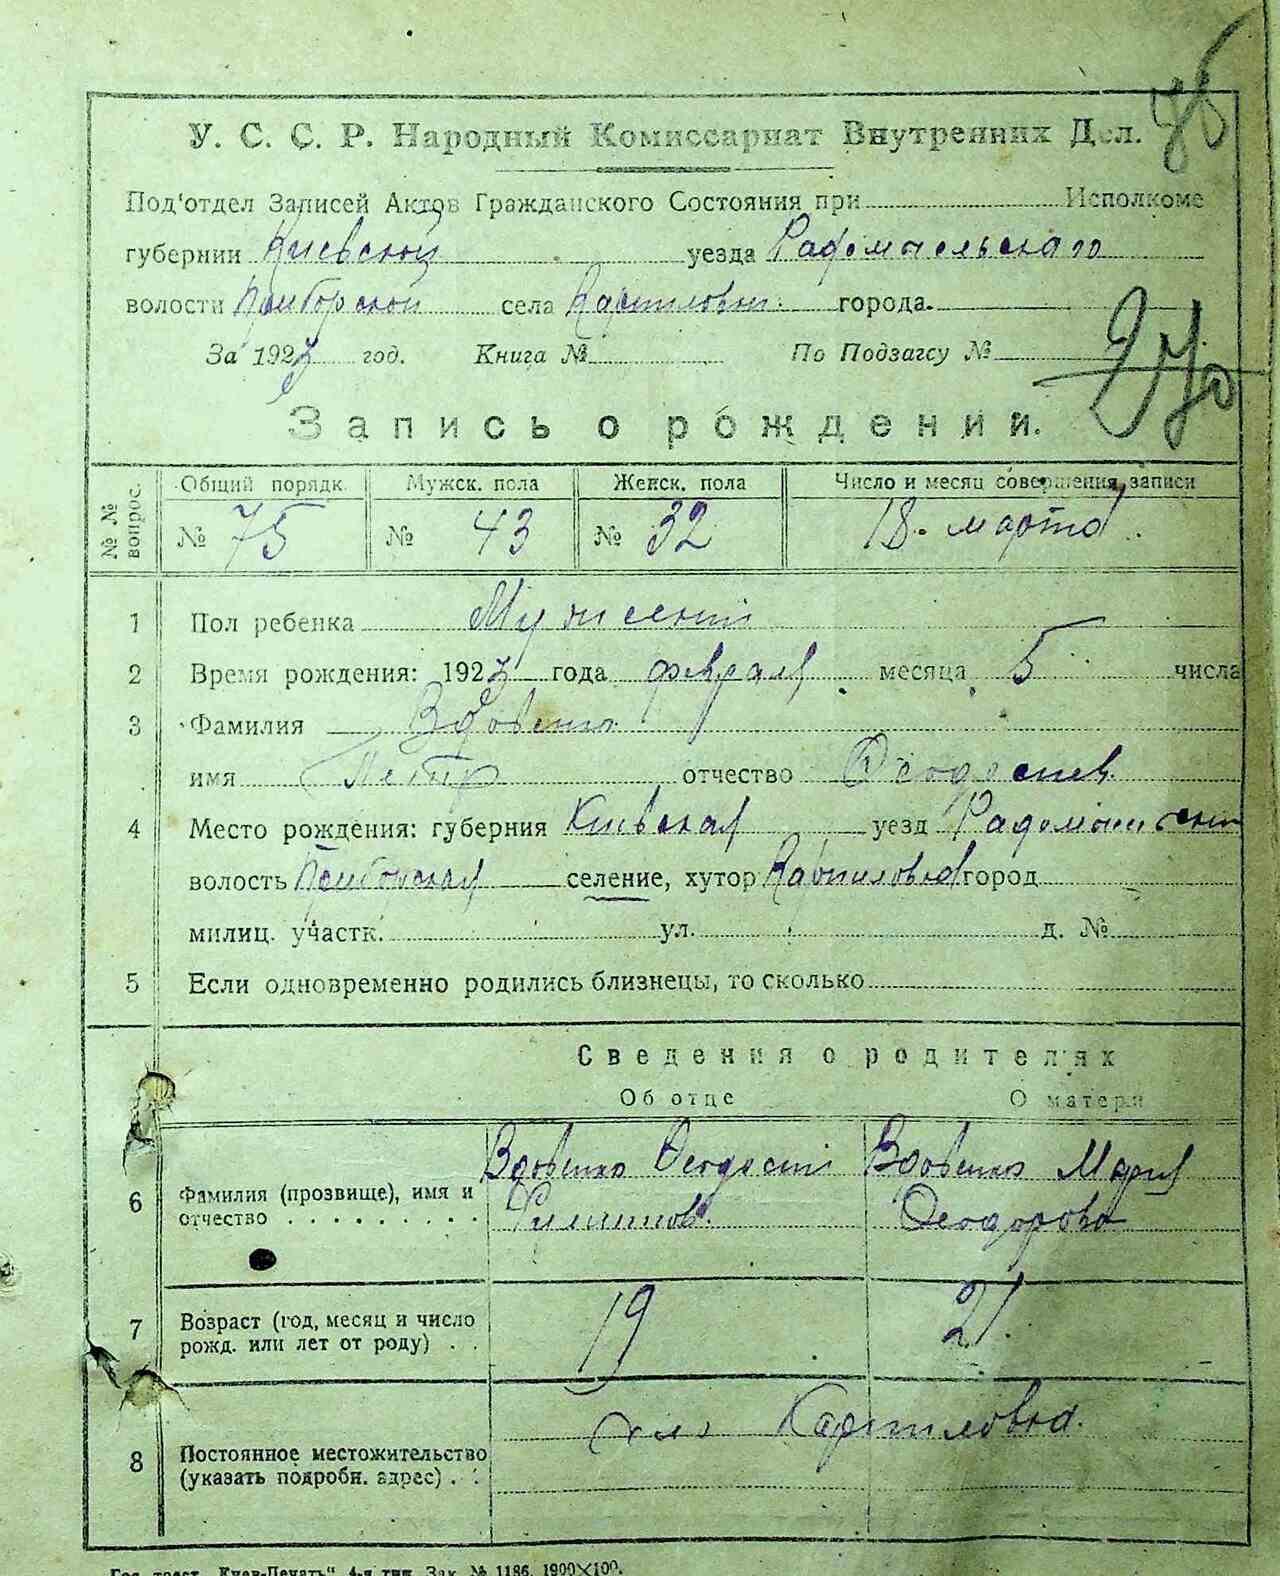 У. С. С. Р. Народный Комиссариат Внутренних Дел.
Под'отдел Записей Актов Гражданского Состояния при Исполкоме
губернии Киевской уезда Радомысльского
волости села Карпиловки города
За 1923 год. Книга № По Подзагсу №
Запись о рождении.
№№ вопрос. Общий порядк. Мужск. пола Женск. пола Число и месяц совершения записи
№ 75 № 43 № 32 18 марта
1 Пол ребенка Мужской
2 Время рождения: 1923 года февраля месяца 5 числа
3 Фамилия Вдовенко
имя Петр отчество Феодосиев
4 Место рождения: губерния Киевская уезд Радомысльский
волость селение, хутор Карпиловка город
милиц. участк. ул. д. №
5 Если одновременно родились близнецы, то сколько
Сведения о родителях
Об отце О матери
Вдовенко Феодосий Вдовенко Мария
6 Фамилия (прозвище), имя и
отчество . . . . . . . . . Филиппов. Феодорова
7 Возраст (год, месяц и число
рожд. или лет от роду) . . 19 21.
село Карпиловка.
8 Постоянное местожительство
(указать подробн. адрес) . .
Гос. трест „Киев-Печать“ 4-я тип. Зак. № 1186. 1900×100.